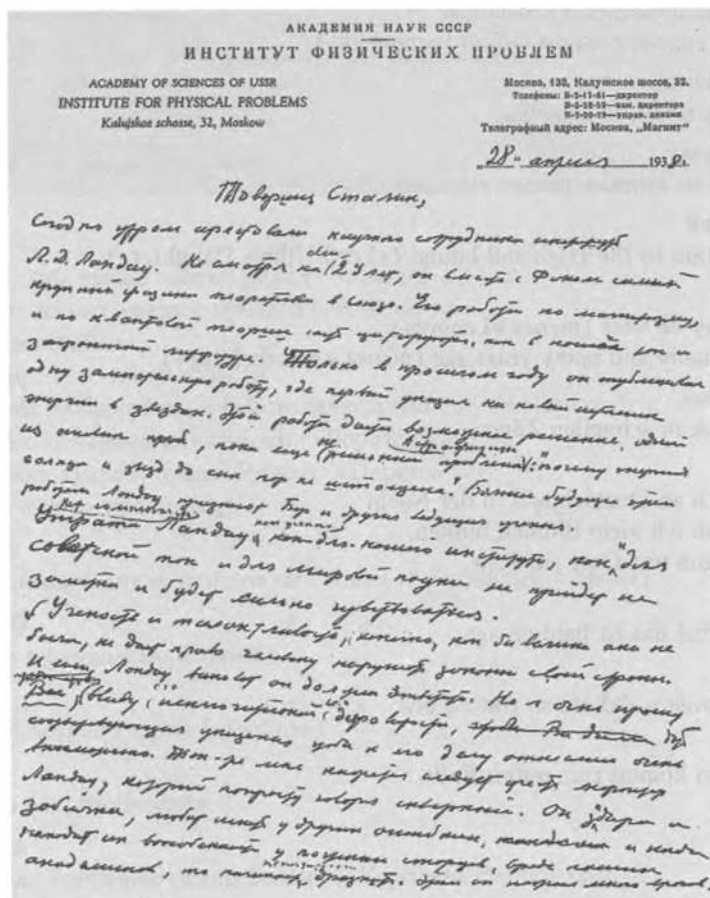 АКАДЕМИЯ НАУК СССР
ИНСТИТУТ ФИЗИЧЕСКИХ ПРОБЛЕМ
ACADEMY OF SCIENCES OF USSR
INSTITUTE FOR PHYSICAL PROBLEMS
Kalujskoe schosse, 32, Moskow
Москва, 133, Калужское шоссе, 32.
Телефоны: —директор
—зам. директора
—управ. делами
Телеграфный адрес: Москва, „Магнит"
„28" апреля 1938.
Товарищ Сталин,
Сегодня утром арестовали научного сотрудника института
Л.Д. Ландау. Несмотря на свои 29 лет, он вместе с Фоком самый
крупный физик теоретик в союзе. Его работы по магнетизму
и по квантовой теории часто цитируются, как в нашей
заграничной литературе. Только в прошлом году он опубликовал
одну замечательную работу, где первый указал на новый источник
энергии в звездах. Этой работой дается возможное решение
из проблем астрофизики : почему энергия
солнца и звезд до сих пор не истощена. Большое будущее этой
работы Ландау признает Бор и другие ведущие ученые.
Нет сомнения
Утрата Ландау, как ученого, как для нашего института, как для
советской так и для мировой науки не пройдет не
заметно и будет сильно чувствоваться.
Ученость и талантливость, конечно, как бы велики они не
были, не дают право человеку нарушать законы своей страны.
И если Ландау виноват он должен ответить. Но я очень прошу
Вас, ввиду исключительной его
соответствующие указания чтоб к его делу отнеслись очень
внимательно. Так-же мне кажется следует учесть характер
Ландау, который попросту говоря скверный. Он задира и
забияка, любит искать у других ошибки, и когда
находит их в особенности у важных старцев, вроде наших
академиков, то начинает дразнить. Этим он нажил много врагов.